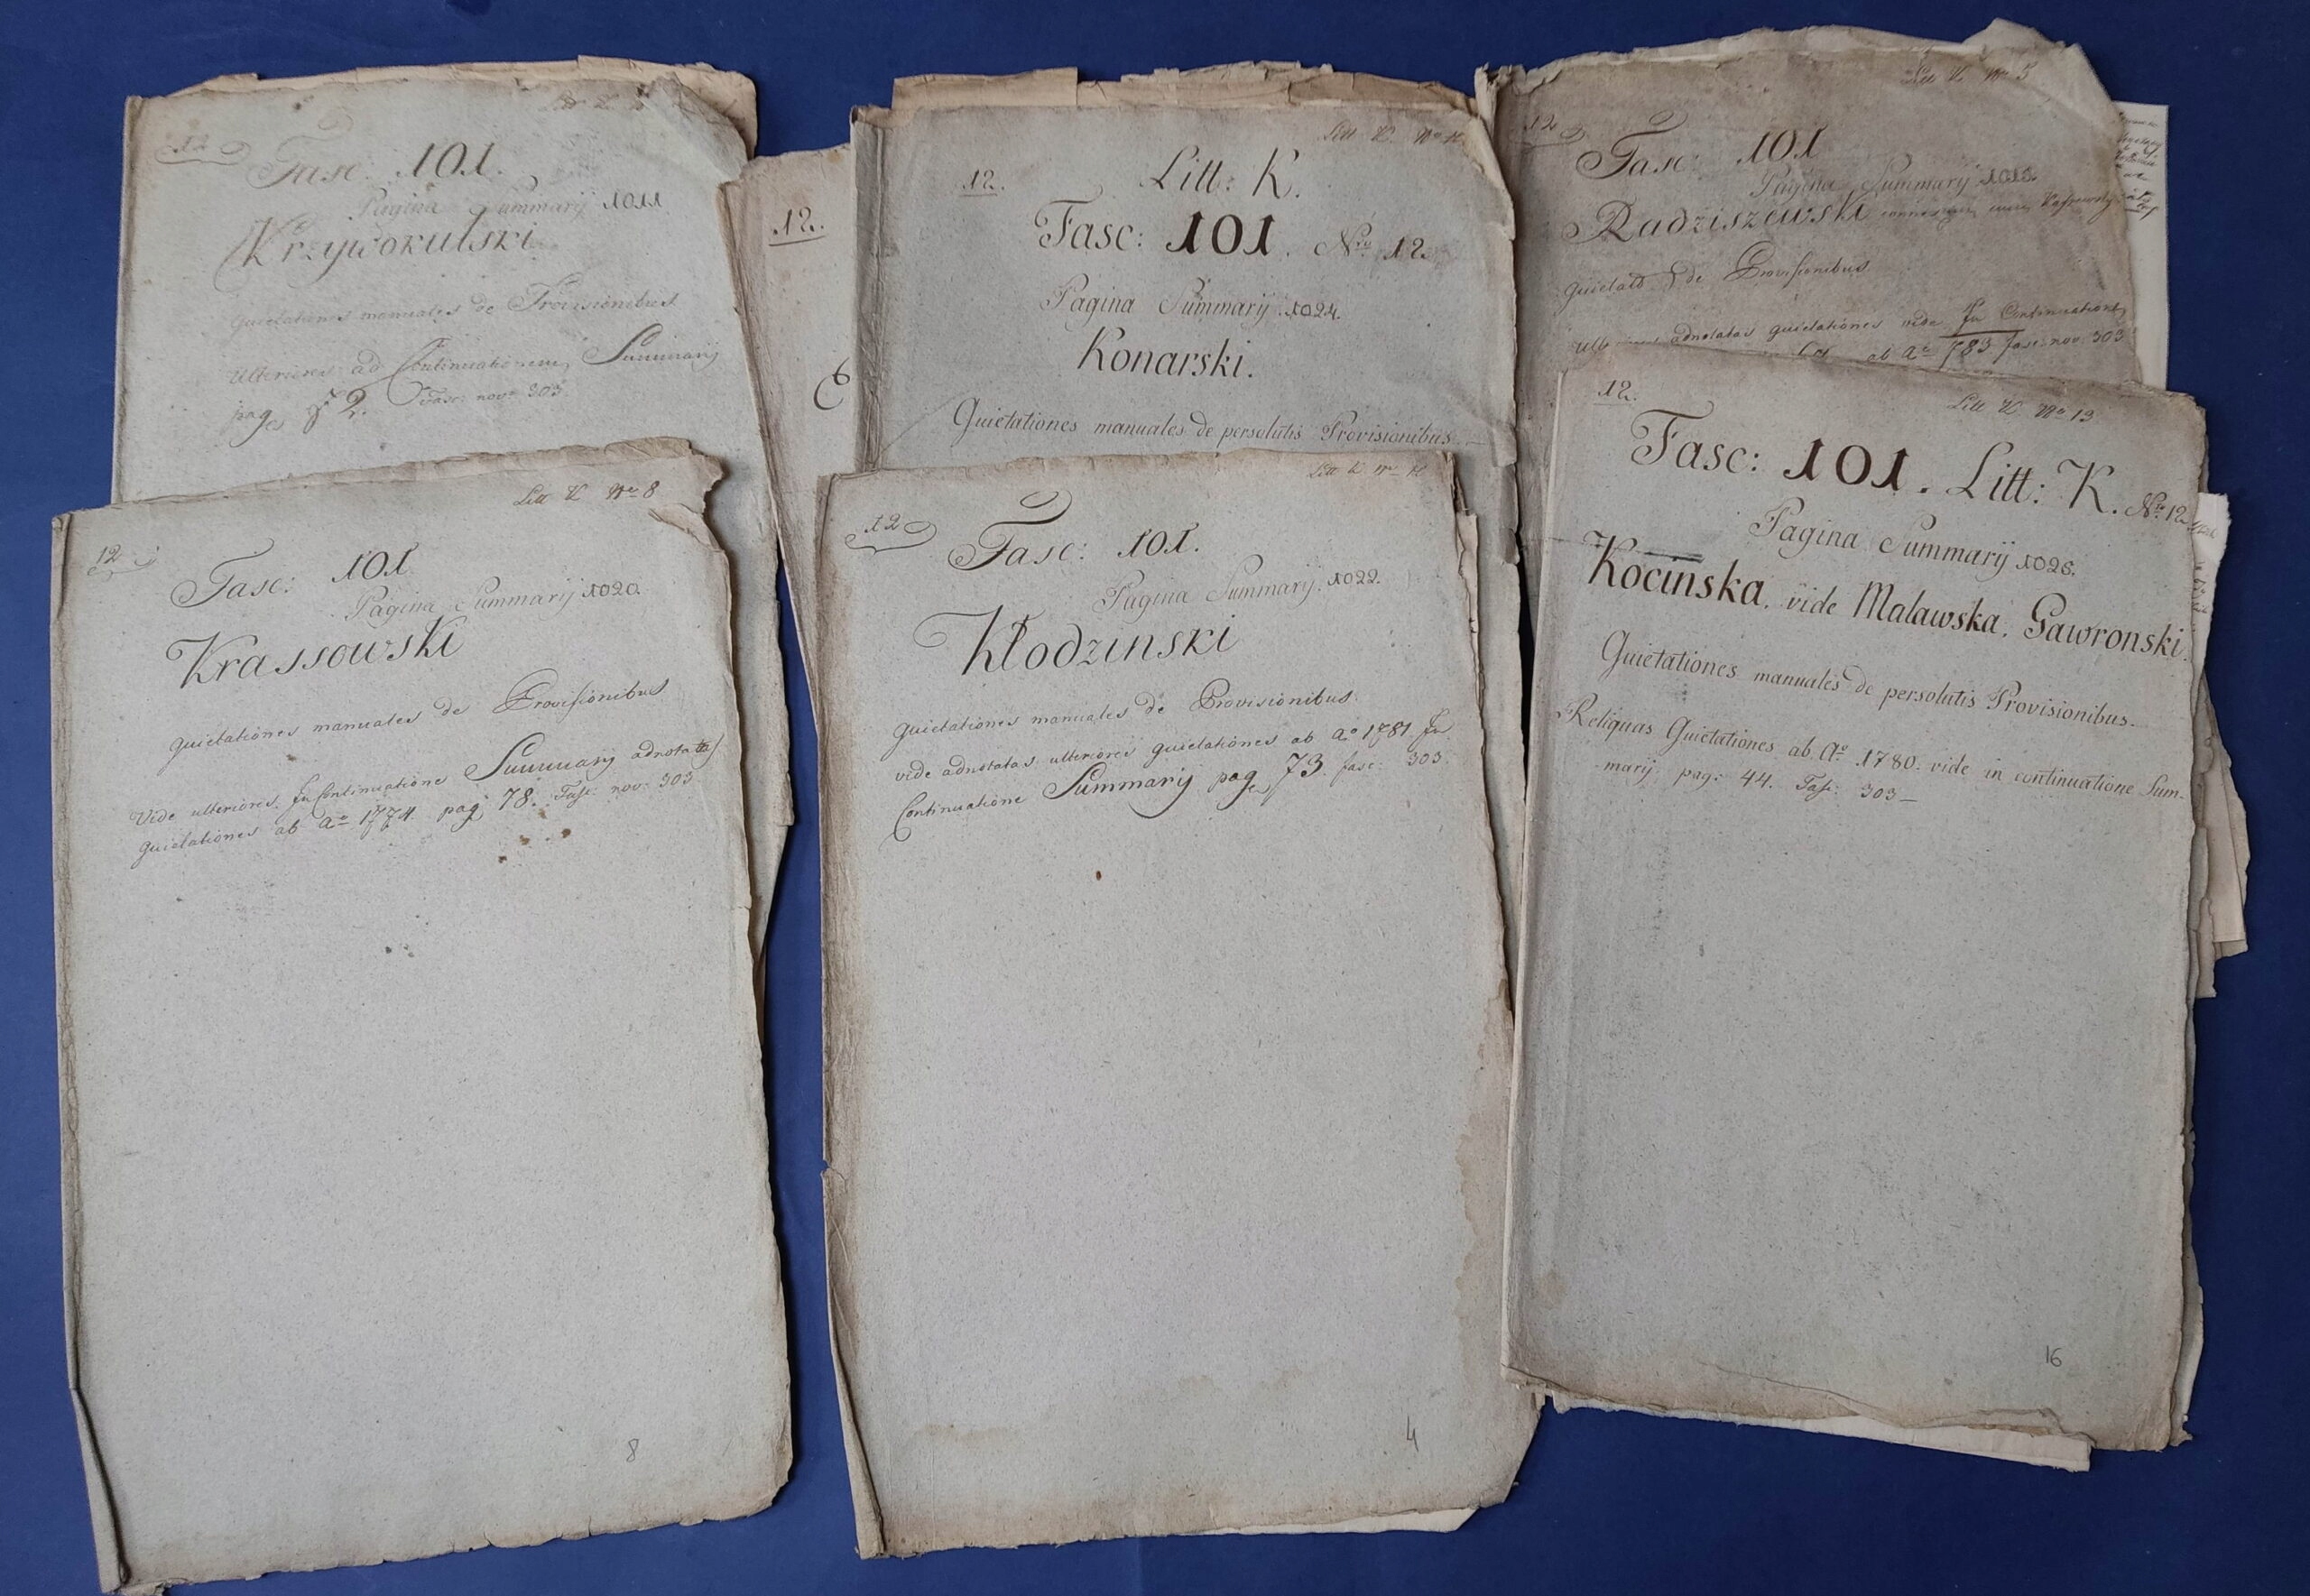 12
Fasc: 101.
Pagina Summarij 1011
Krzywokulski
Quietationes manuales de Provisionibus
Ulteriores ad Continuationem Summarij
pag 82. Fasc: nov: 303.
12.
Litt K Nro
12.
Litt: K.
Fasc: 101. Nro 12.
Pagina Summarij 1024.
Konarski.
Quietationes manuales de persolutis Provisionibus.
Litt K Nro 5
12
Fasc: 101
Pagina Summarij
Radziszewski
Quietat de Provisionibus
adnotatas quietationes vide In Continuatione
ab Ao 783 fasc: nov: 303
Litt K Nro 8
12
Fasc: 101
Pagina Summarij 1020.
Krassowski
quietationes manuales de Provisionibus
Vide ulteriores In Continuatione Summarij adnotatas
quietationes ab Ao 1774 pag 78. Fasc: nov: 303
8
Litt K Nro
12
Fasc: 101.
Pagina Summarij 1022.
Kłodzinski
quietationes manuales de Provisionibus.
vide adnotatas ulteriores quietationes ab Ao 1781 In
Continuatione Summarij pag 73. fasc: 303.
4
12.
Litt K Nro 13
Fasc: 101. Litt: K. Nro 12
Pagina Summarij
Kocinska. vide Malawska, Gawronski.
Quietationes manuales de persolutis Provisionibus.
Reliquas Quietationes ab Ao 1780. vide in continuatione Sum-
marij pag: 44. Fas: 303 —
16